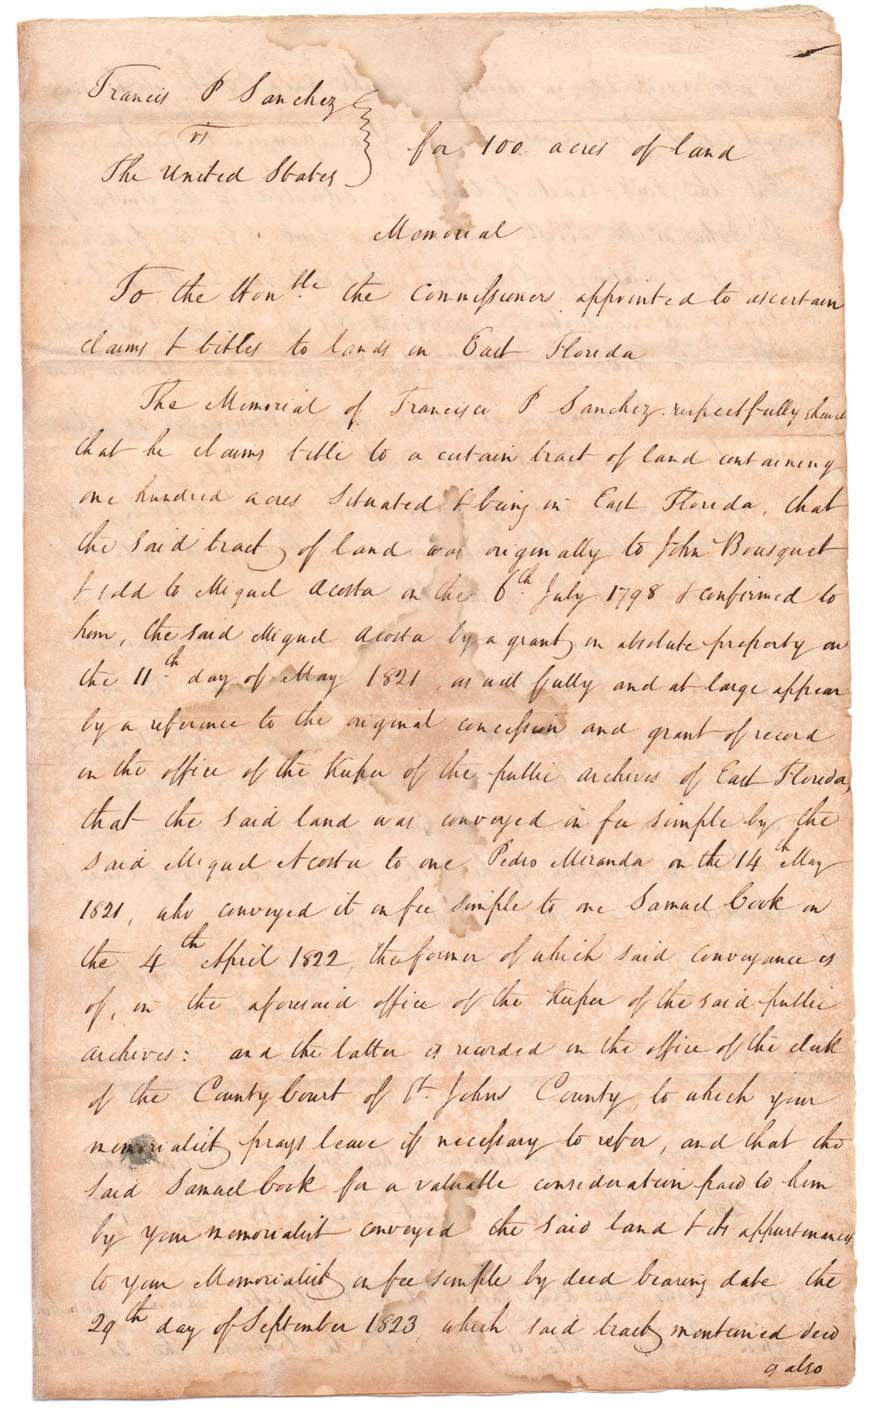 Francis P Sanchez
vs
The United States
for 100 acres of land
Memorial
To the Honble the Commissioners appointed to ascertain
claims & titles to lands in East Florida
The Memorial of Francisco P Sanchez respectfully shews
that he claims title to a certain tract of land containing
one hundred acres situated & being in East Florida, that
the said tract of land was originally to John Bousquet
& sold to Miguel Acosta on the 6th July 1798 & confirmed to
him, the said Miguel Acosta by a grant in absolute property on
the 11th day of May 1821 as will fully and at large appear
by a reference to the original concession and grant of record
in the office of the Keeper of the public archives of East Florida,
that the said land was conveyed in fee simple by the
said Miguel Acosta to one Pedro Miranda on the 14th May
1821, who conveyed it in fee simple to one Samuel Cook on
the 4th April 1822, the former of which said conveyance is
of, in the aforesaid office of the Keeper of the said public
archives: and the latter is recorded in the office of the clerk
of the County Court of St. Johns County, to which your
memorialist prays leave if necessary to refer, and that the
said Samuel Cook for a valuable consideration paid to him
by your memorialist conveyed the said land & its appurtenances
to your Memorialist in fee simple by deed bearing date the
29th day of September 1823, which said tract mentioned deed
also